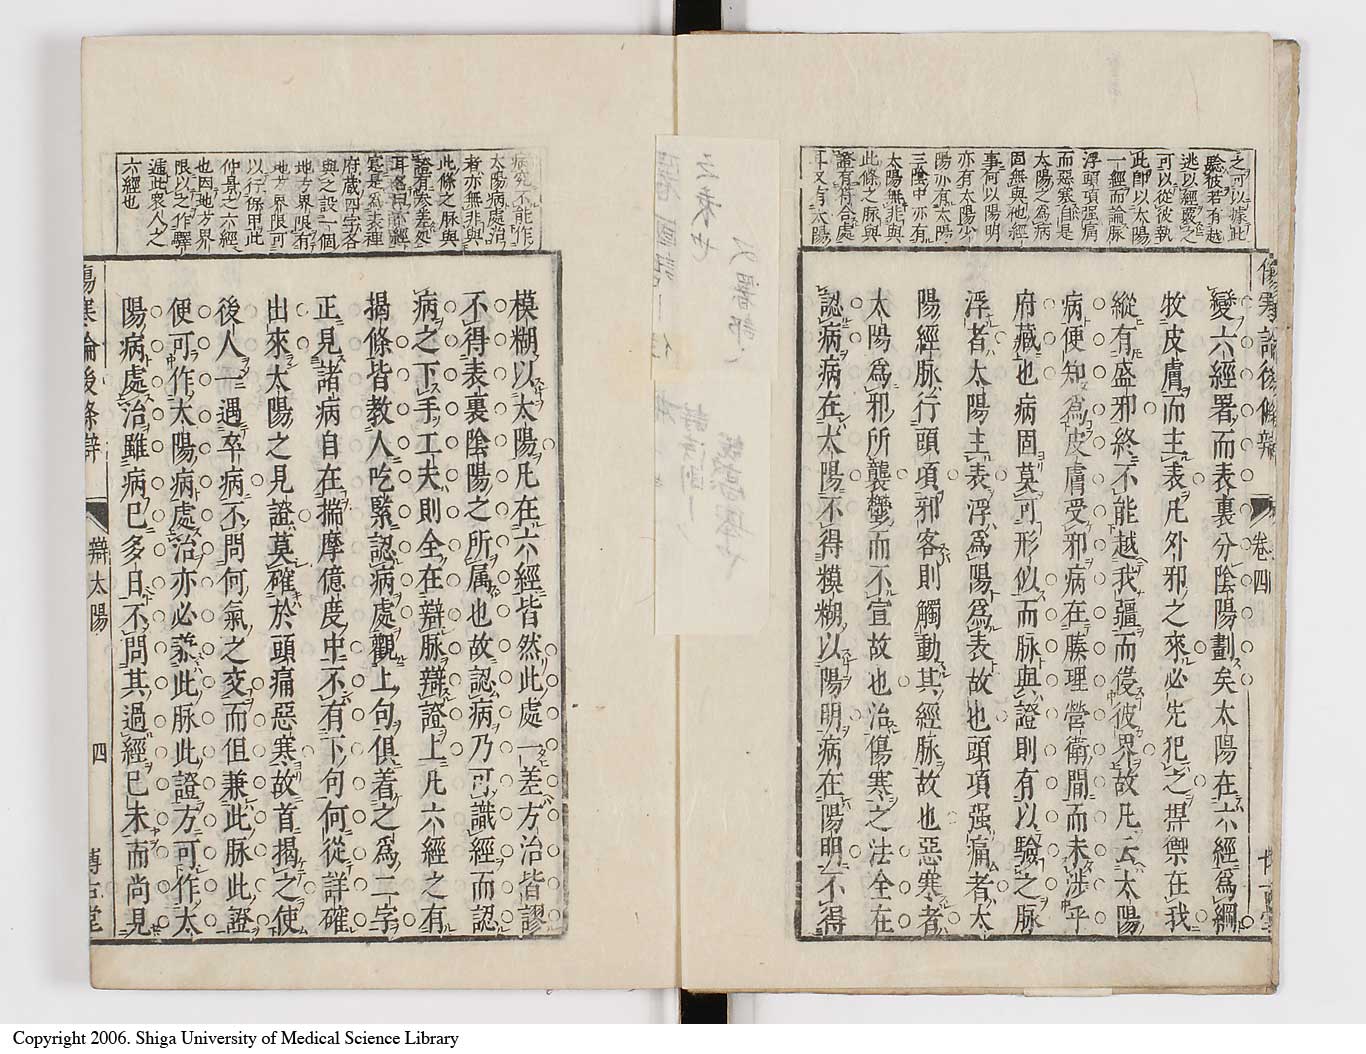 之可以據此
聡彼若有越
逃以經嚴之
可以從彼執
此卽以太陽
一經而論脉
浮頭項强痛
而惡寒自是
太陽之爲病
固無與他經
事何以陽明
亦有太陽少
陽亦有太陽
三陰中亦有
太陽無非與
此條之脉與
證有符合處
耳又有太陽
傷寒論後條辨 卷四
變六經署而表裏分陰陽劃矣太陽在六經爲綱
牧皮膚而主表凡外邪之來必先犯之捍禦在我
縱有盛邪終不能越我疆而侵彼界故凡云太陽
病便知爲皮膚受邪病在腠理營衛間而未涉乎
府藏也病固莫可形似而脉與證則有以驗之脉
浮者太陽主表浮爲陽爲表故也頭項强痛者太
陽經脉行頭項邪客則觸動其經脉故也惡寒者
太陽爲邪所襲鬱而不宣故也治傷寒之法全在
認病病在太陽不得模糊以陽明病在陽明不得
之義也
病究不能作
太陽病處治
者亦無非與
此條之脉與
證有參差處
耳名曰辨
寒是爲表種
府藏四字各
與之設一個
地方界限有
地方界限可
以行保甲此
仲景之六經
也因地方界
限以之作驛
遞此衆人之
六經也
模糊以太陽凡在六經皆然此處一差方治皆謬
不得表裏陰陽之所属也故認病乃可識經而認
病之下手工夫則全在辯脉辯證上凡六經之有
揭條皆教人吃緊認病處觀上句俱着之爲二字
正見諸病自在揣摩億度中不有下句何從詳確
出來太陽之見證莫確於頭痛惡寒故首揭之使
後人一遇卒病不問何氣之変而但兼此脉此證
便可作太陽病處治亦必兼此脉此證方可作太
陽病處治雖病已多日不問其過經已未而尚見
傷寒論後條辨 辯太陽 四 博古堂